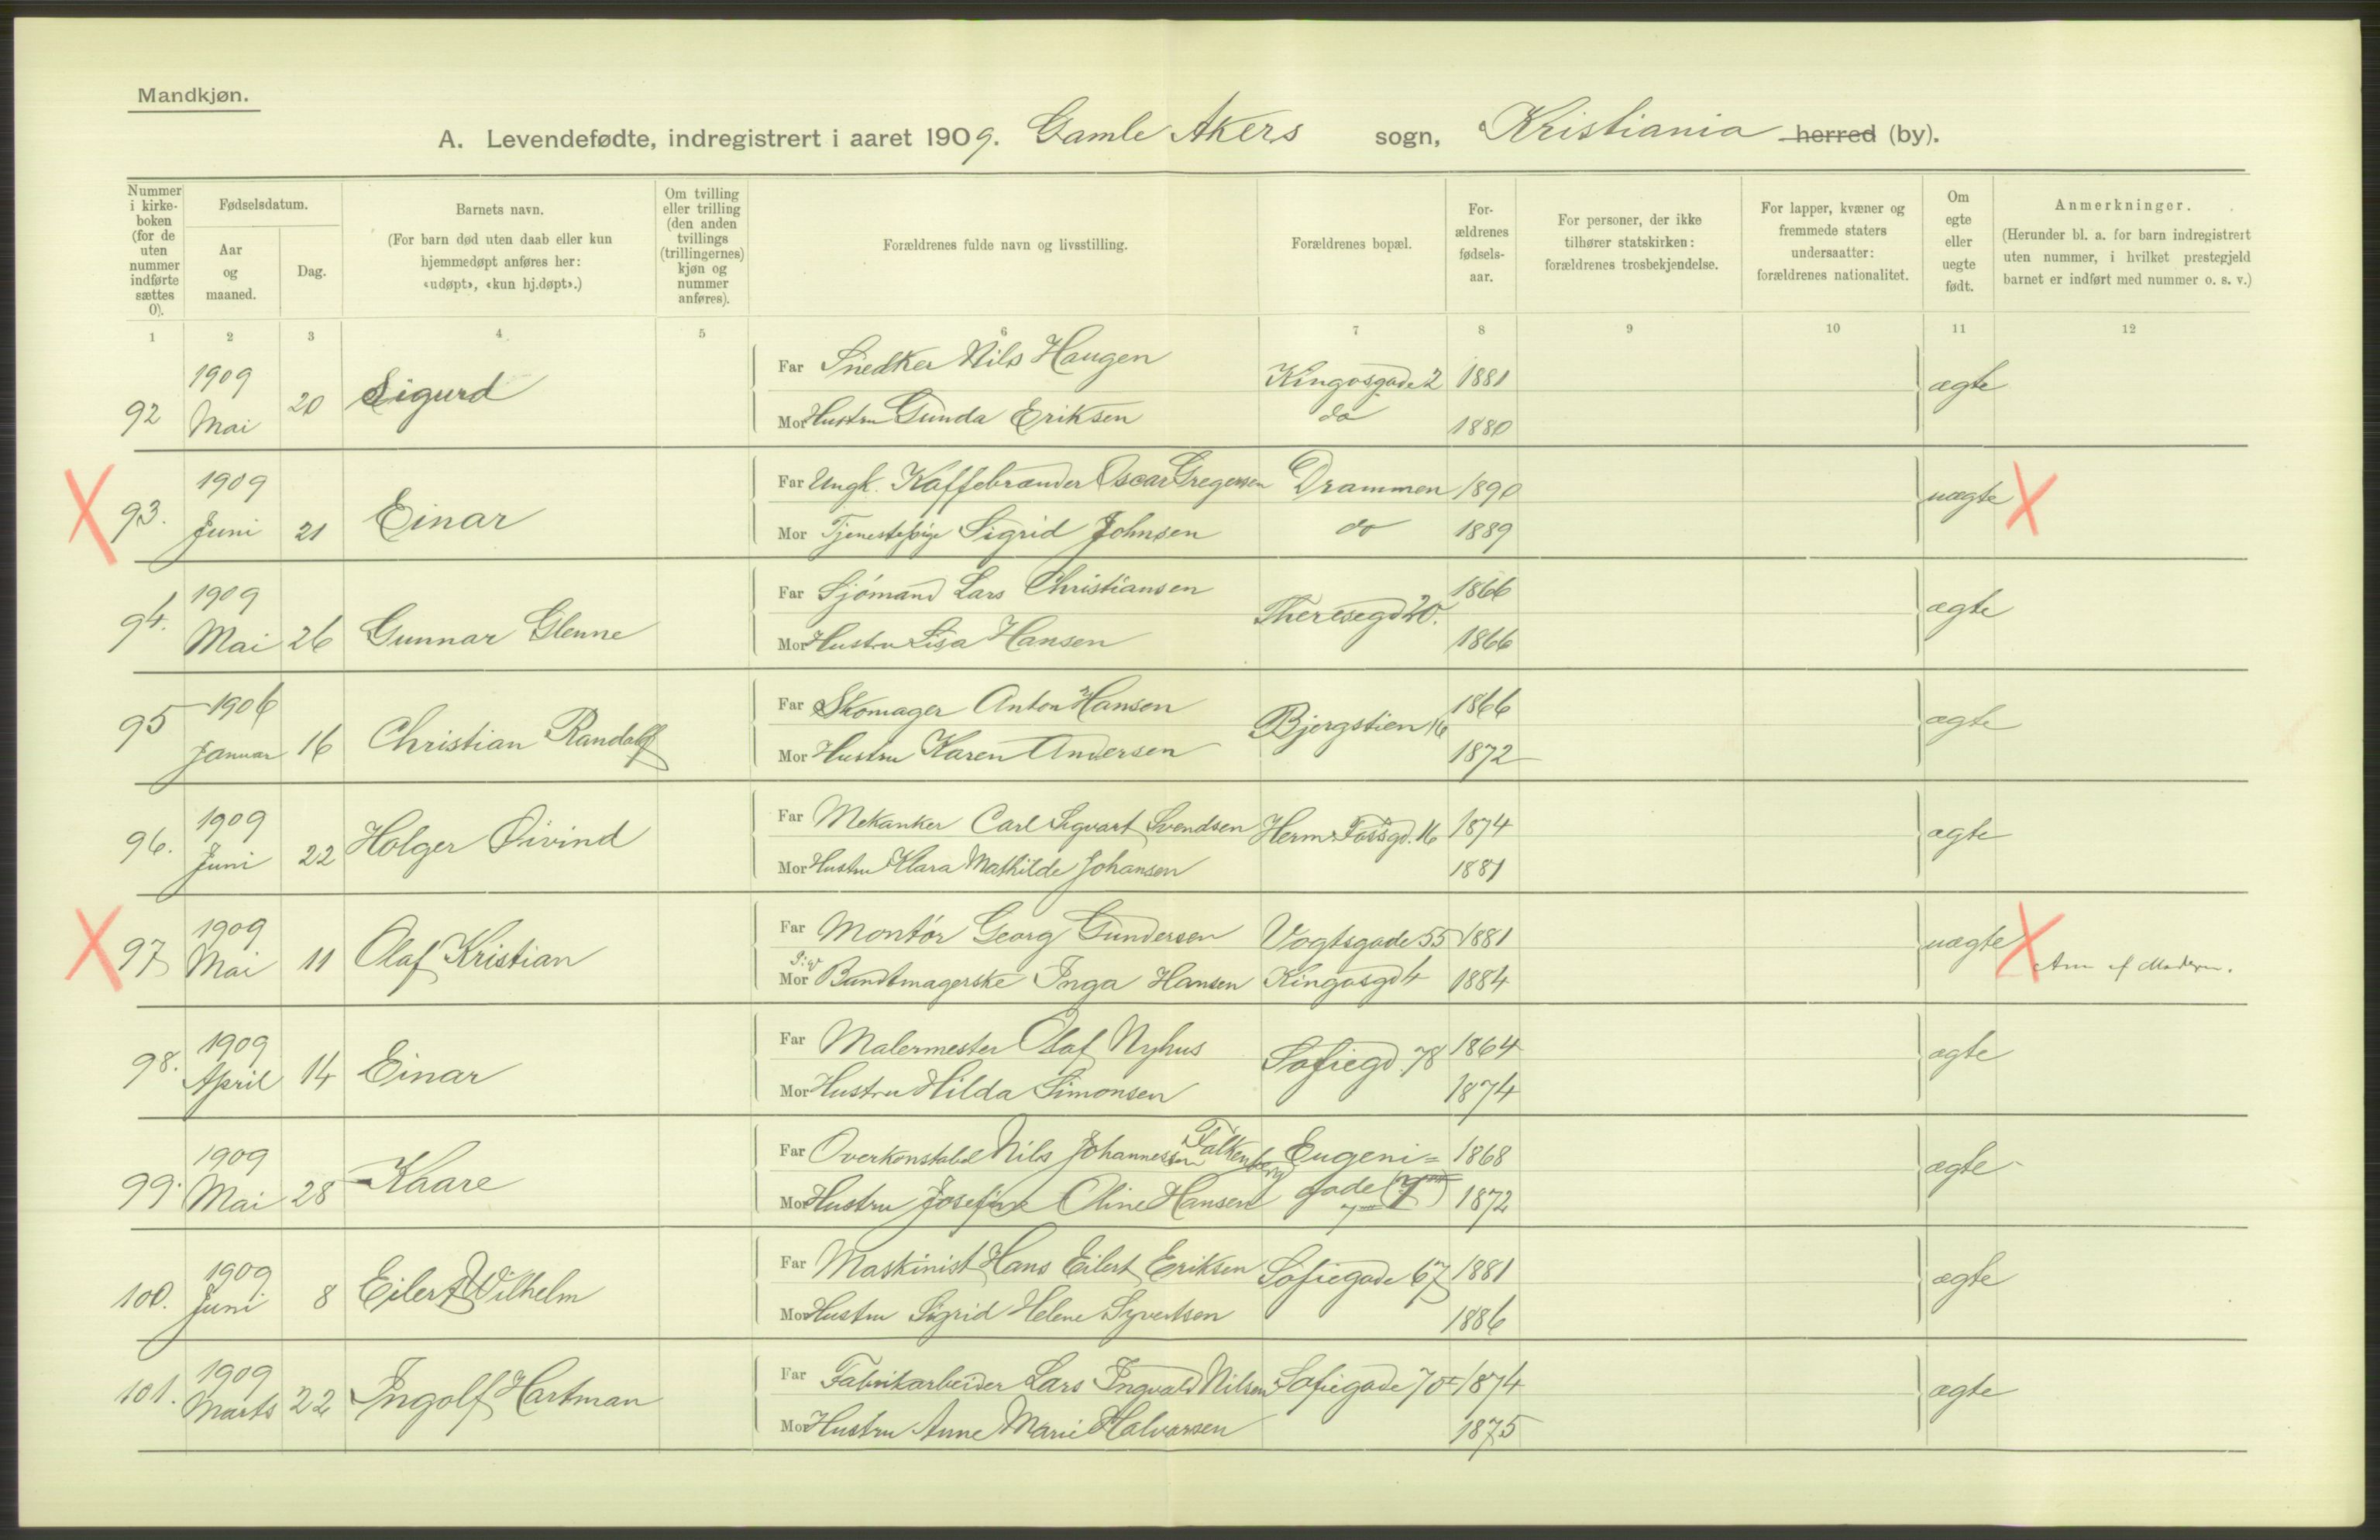 Mandkjøn.
A. Levendefødte, indregistrert i aaret 1909. Gamle Akers sogn, Kristiania herred (by).
Nummer i kirke-boken (for de uten nummer indførte sættes 0).
Fødselsdatum.
Aar og maaned.
Dag.
Barnets navn.
(For barn død uten daab eller kun hjemmedøpt anføres her: «udøpt», «kun hj.døpt».)
Om tvilling eller trilling (den anden tvillings (trillingernes) kjøn og nummer anføres).
Forældrenes fulde navn og livsstilling.
Forældrenes bopæl.
For-ældrenes fødsels-aar.
For personer, der ikke tilhører statskirken: forældrenes trosbekjendelse.
For lapper, kvæner og fremmede staters undersaatter: forældrenes nationalitet.
Om egte eller uegte født.
Anmerkninger.
(Herunder bl. a. for barn indregistrert uten nummer, i hvilket prestegjeld barnet er indført med nummer o. s. v.)
1 2 3 4 5 6 7 8 9 10 11 12
92 1909 Mai 20 Sigurd Far Snedker Nils Haugen Kingosgade 2 1881 ægte
Mor Hustru Gunda Eriksen do 1880
X 93. 1909 Juni 21 Einar Far Ungk. Kaffebrænder Oscar Gregersen Drammen 1890 uægte X
Mor Tjenestepige Sigrid Johnsen do 1889
94. 1909 Mai 26 Gunnar Glenne Far Sjömand Lars Christiansen Theresegd 20. 1866 ægte
Mor Hustru Lisa Hansen 1866
95 1906 Januar 16 Christian Randolf Far Skomager Anton Hansen Bjergstien 16 1866 ægte
Mor Hustru Karen Andersen 1872
96. 1909 Juni 22 Holger Øivind Far Mekanker Carl Sigvart Svendsen Herm. Fossgd. 16 1874 ægte
Mor Hustru Klara Mathilde Johansen 1881
X 97 1909 Mai 11 Olaf Kristian Far Montör Georg Gundersen Vogtsgade 55 1881 uægte X
Mor Bundtmagerske Inga Hansen Kingosgd 4 1884 Anm af Moderen.
98. 1909 April 14 Einar Far Malermester Olaf Nyhus Sofiegd. 78 1864 ægte
Mor Hustru Hilda Simonsen 1874
99. 1909 Mai 28 Kaare Far Overkonstabel Nils Johannessen Falkenberg Eugeni= 1868 ægte
Mor Hustru Josefine Oline Hansen gade 7 1872
100. 1909 Juni 8 Eilert Wilhelm Far Maskinist Hans Eilert Eriksen Sofiegade 67 1881 ægte
Mor Hustru Sigrid Helene Syvertsen 1886
101. 1909 Marts 22 Ingolf Hartman Far Fabrikarbeider Lars Ingvald Nilsen Sofiegade 70 1874 ægte
Mor Hustru Anne Marie Halvorsen 1875